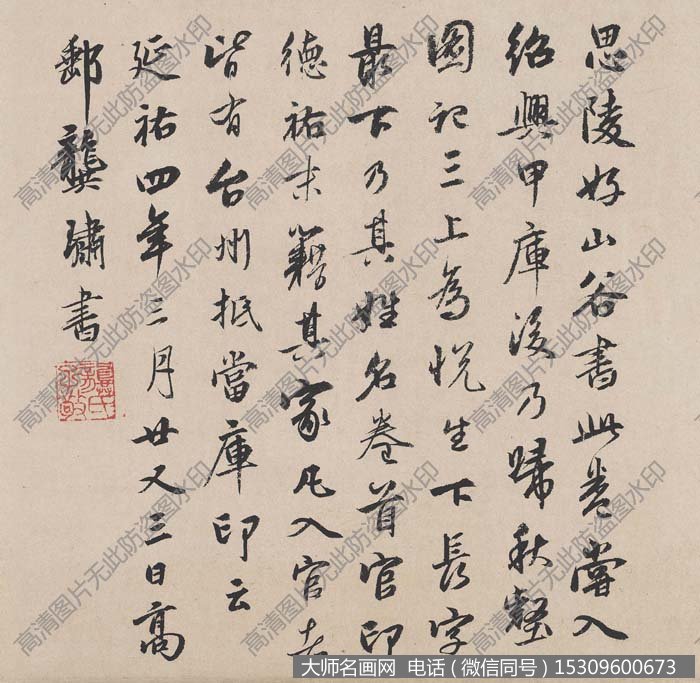 思陵好山谷書此卷嘗入
紹興甲庫後乃歸秋壑
圖記三上為悅生下長字
最下乃其姓名卷首官印
德祐末籍其家凡入官者
皆有台州抵當庫印云
延祐四年三月廿又三日高
郵龔璛書
高清图片无此防盗图水印
大师名画网 电话（微信同号）15309600673